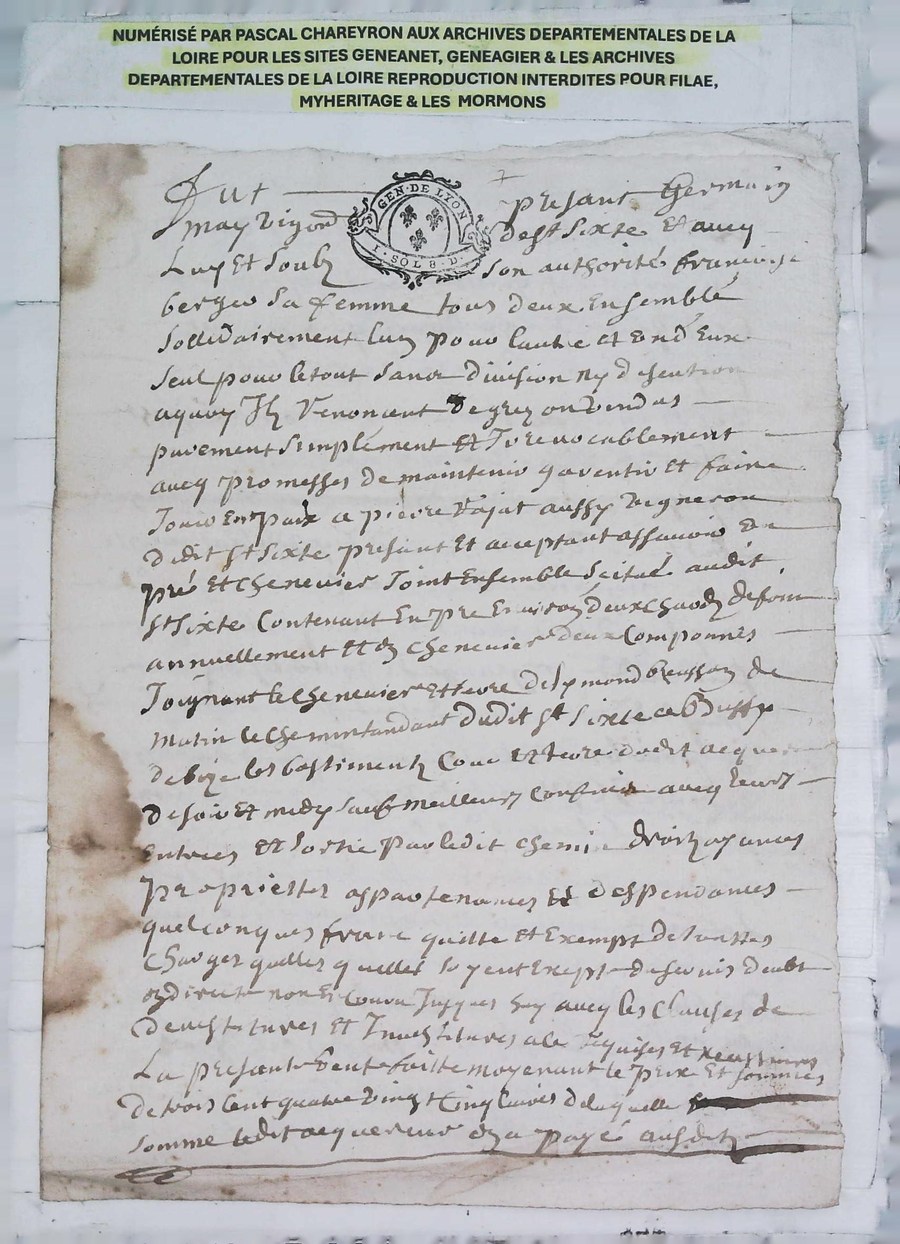 NUMÉRISÉ PAR PASCAL CHAREYRON AUX ARCHIVES DEPARTEMENTALES DE LA
LOIRE POUR LES SITES GENEANET, GENEAGIER & LES ARCHIVES
DEPARTEMENTALES DE LA LOIRE REPRODUCTION INTERDITES POUR FILAE,
MYHERITAGE & LES MORMONS
Fut present Germain
GEN·DE LYON
de st Sixte et avecq
1·SOL 8·D
Luy et soubz son authorité francoise
sa femme tous deux Ensemble
sollidairement lun pour lautre et un deux
seul pour le tout sans division ny discution
aquoy Ilz renoncent de gre ont vendus
purement simplement et Irevocablement
avecq promesses de maintenir garentir et faire
Jouir En paix a pierre aussy vigneron
dudit st Sixte present et acceptant assavoir un
pré et chenevier Joint Ensemble scitué audit
st Sixte Contenant En pre Environ deux chards de foin
annuellement et du chenevier deux Componnes
Joignant le chenevier et terre de de
matin le chemin tandant dudit st Sixte a
de bize les bastiments Cour et terre dudit acquereur
de soir et midy sauf meilleurs Confins avecq leurs
Entrees et sortie par ledit chemin droitz aysances
proprietes appartenances et despendances
quelconques franc quitte et Exempt de touttes
charges quelles quelles soyent Excepte
avecq les clauses de
devestitures et Investitures a ce requises et necessaires
La presante vente faitte moyenant le prix et sommes
de trois cent quatre vingt Cinq livres de laquelle
somme ledit acquereur en a payé ausditz